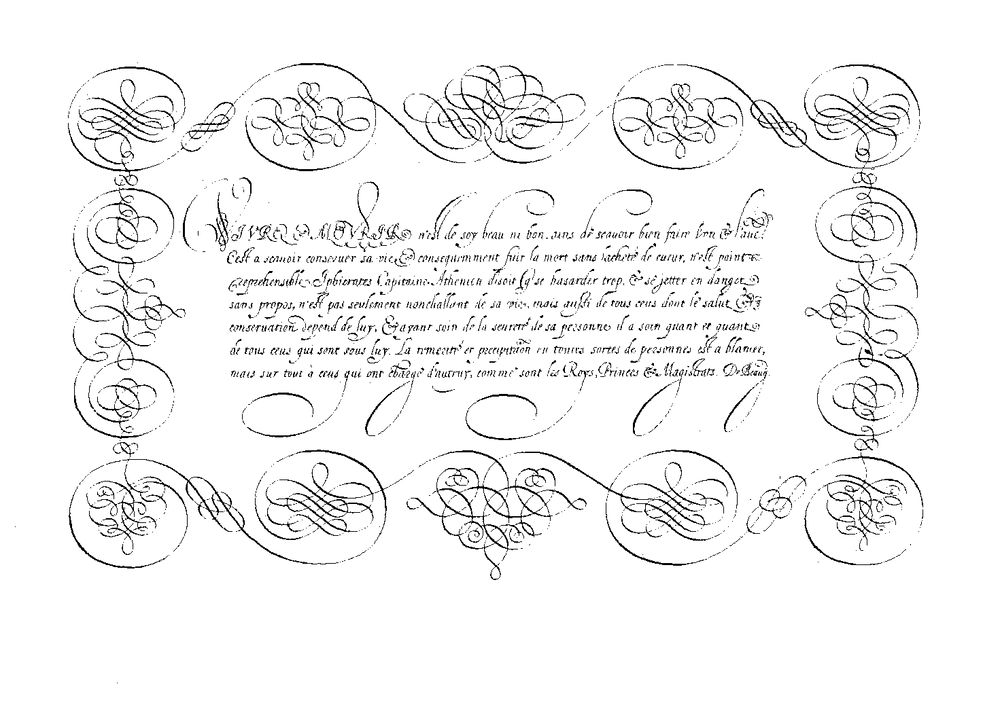 VIVRE & MOVRIR n'est de soy beau ni bon, sans de scauoir bien faire l'vn & l'autre
C'est a scauoir conseruer sa vie & consequemment fuir la mort sans lacheté de cueur, n'est point
reprehensible. Iphicrates Capitaine Athenien disoit q̃ se hasarder trop, & se jetter en danger
sans propos, n'est pas seulement nonchallant de sa vie, mais aussi de tous ceus dont le salut &
conseruation depend de luy, & ayant soin de la seureté de sa personne il a soin quant et quant
de tous ceus qui sont sous luy. La temerité et precipitation en toutes sortes de personnes est a blamer,
mais sur tout à ceus qui ont charge d'autruy, comme sont les Roys, Princes & Magistrats. De Beaug.